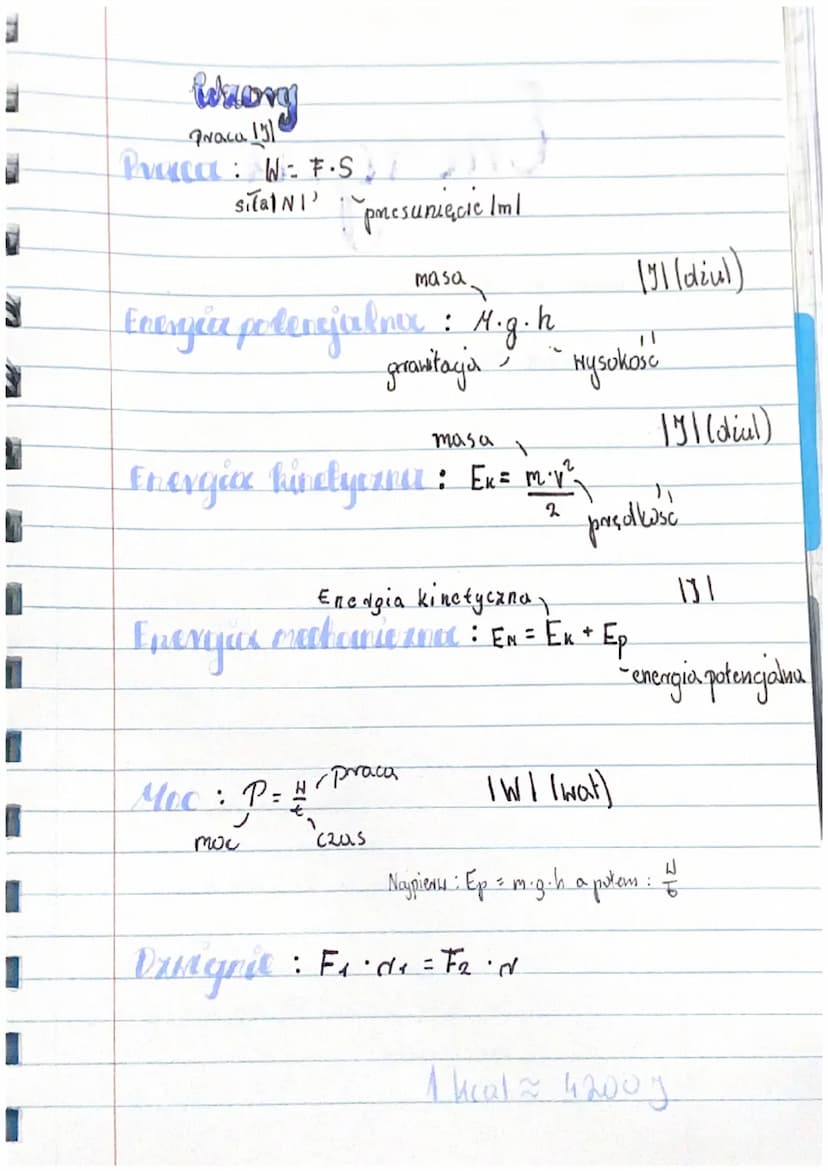 Wzory
praca |J|
Praca : W = F · S
siła |N| przesunięcie |m|
masa |J| (dżul)
Energia potencjalna : M · g · h
grawitacja wysokość
masa |J| (dżul)
Energia kinetyczna : Eк = m · v² / 2
prędkość
Energia kinetyczna |J|
Energia mechaniczna : Eм = Eк + Ep
energia potencjalna
Moc : P = W / t praca |W| (wat)
moc czas
Najpierw : Ep = m · g · h a potem : W / t
Dźwignie : F₁ · r₁ = F₂ · r
1 kcal ≈ 4200 J